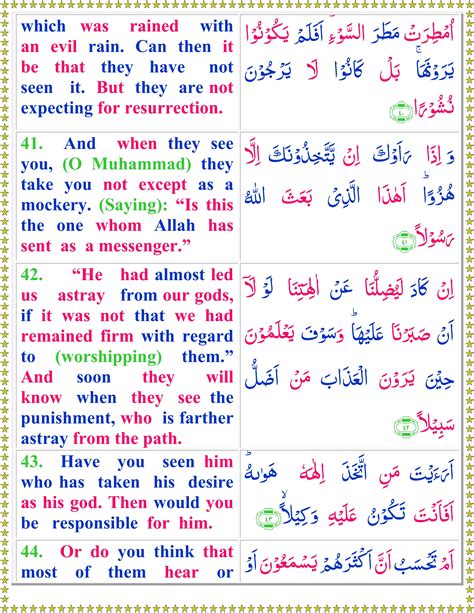 which was rained with
an evil rain. Can then it
be that they have not
seen it. But they are not
expecting for resurrection.
اُمْطِرَتْ مَطَرَ السَّوْءِ اَفَلَمْ يَكُوْنُوْا
يَرَوْنَهَا بَلْ كَانُوْا لَا يَرْجُوْنَ
نُشُوْرًا ٤٠
41. And when they see
you, (O Muhammad) they
take you not except as a
mockery. (Saying): “Is this
the one whom Allah has
sent as a messenger.”
وَ اِذَا رَاَوْكَ اِنْ يَّتَّخِذُوْنَكَ اِلَّا
هُزُوًا اَهٰذَا الَّذِىْ بَعَثَ اللّٰهُ
رَسُوْلًا ٤١
42. “He had almost led
us astray from our gods,
if it was not that we had
remained firm with regard
to (worshipping) them.”
And soon they will
know when they see the
punishment, who is farther
astray from the path.
اِنْ كَادَ لَيُضِلُّنَا عَنْ اٰلِهَتِنَا لَوْ لَاۤ
اَنْ صَبَرْنَا عَلَيْهَا وَسَوْفَ يَعْلَمُوْنَ
حِيْنَ يَرَوْنَ الْعَذَابَ مَنْ اَضَلُّ
سَبِيْلًا ٤٢
43. Have you seen him
who has taken his desire
as his god. Then would you
be responsible for him.
اَرَءَيْتَ مَنِ اتَّخَذَ اِلٰهَهٗ هَوٰٮهُ
اَفَاَنْتَ تَكُوْنُ عَلَيْهِ وَكِيْلًا ٤٣
44. Or do you think that
most of them hear or
اَمْ تَحْسَبُ اَنَّ اَكْثَرَهُمْ يَسْمَعُوْنَ اَوْ